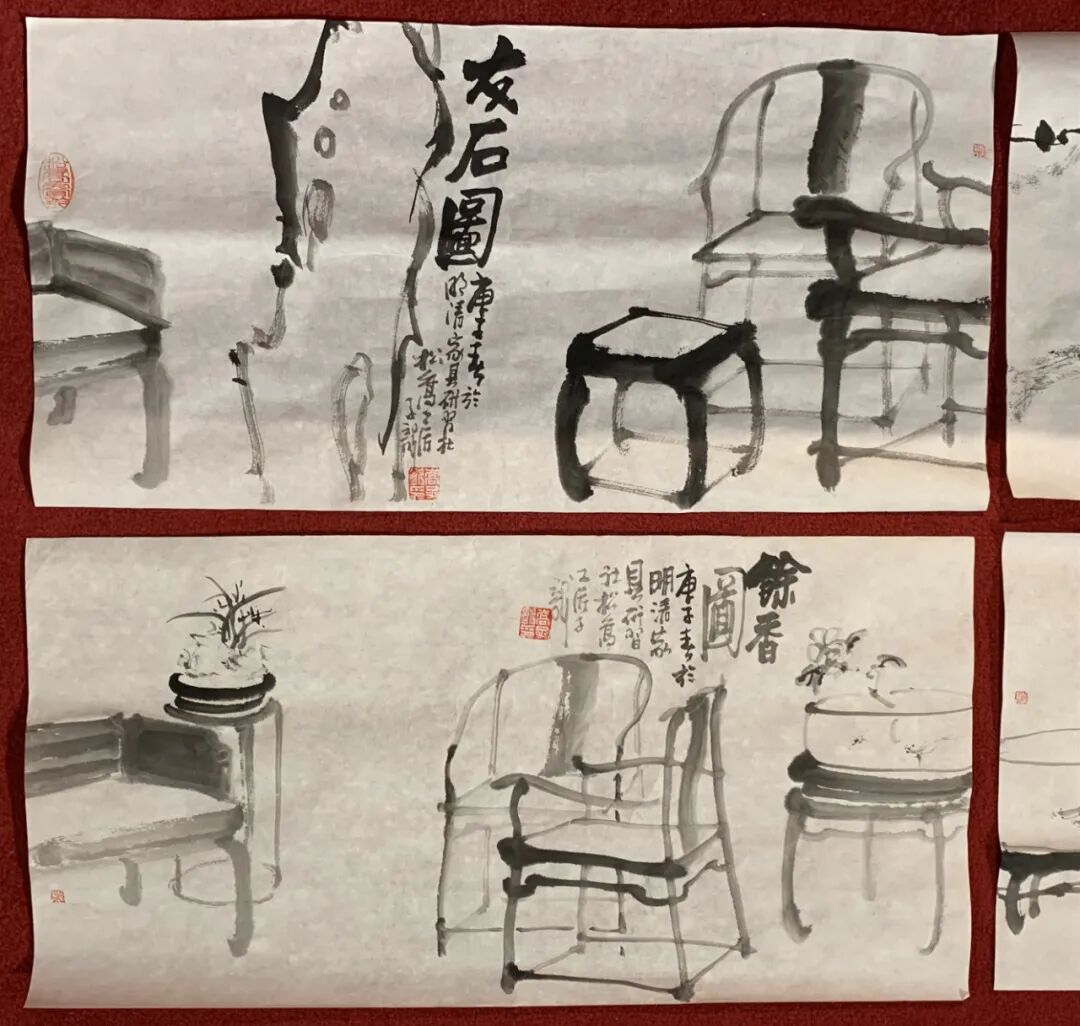 友石圖
庚子春於
明清家具研習社
松篙工匠
餘香
圖
庚子春於
明清家
具研習
社松篙
工匠子